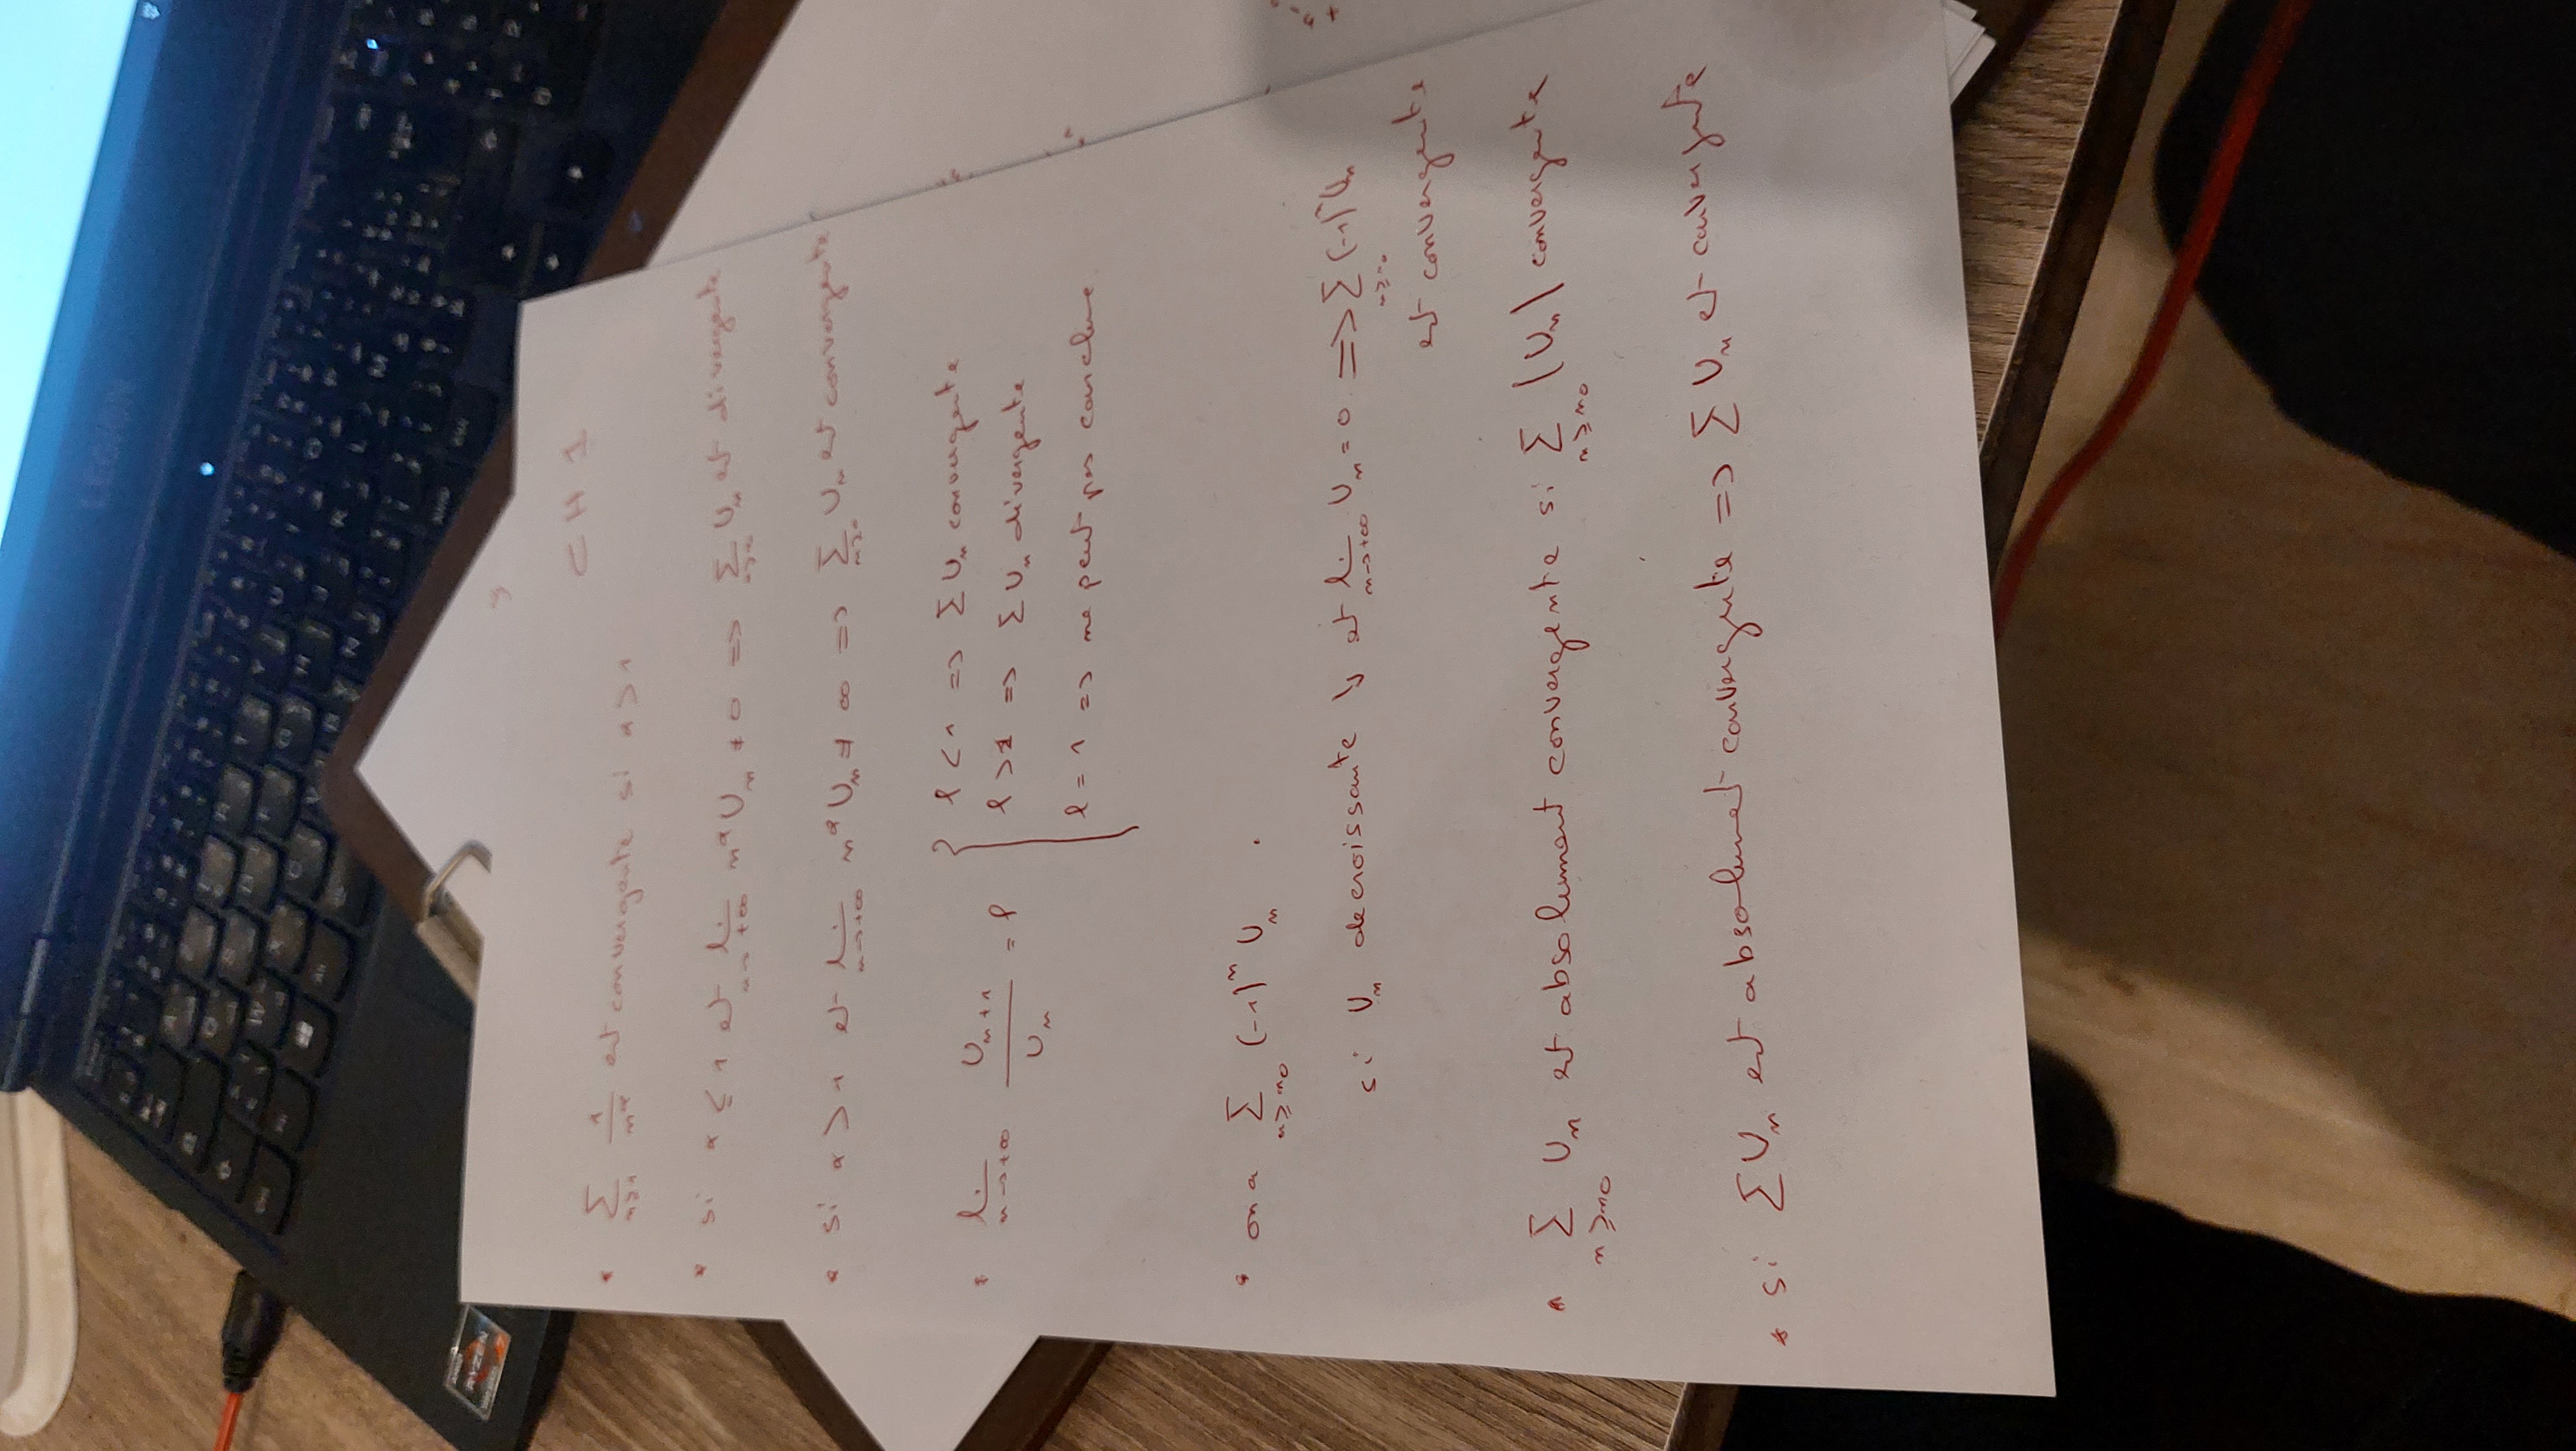 LEGION
RYZEN
CH 1
* ∑ n≥1 1/n^α est convergente si α > 1
* si α ≤ 1 et lim n→+∞ n^α Un ≠ 0 => ∑ Un est divergente
* si α > 1 et lim n→+∞ n^α Un ≠ ∞ => ∑ Un est convergente
* lim n→+∞ Un+1 / Un = l { l < 1 => ∑ Un convergente
l > 1 => ∑ Un divergente
l = 1 => ne peut pas conclure
* on a ∑ n≥n0 (-1)^n Un .
si Un decroissante ↘ et lim n→+∞ Un = 0 => ∑ n≥n0 (-1)^n Un
est convergente
* ∑ n≥n0 Un est absolument convergente si ∑ n≥n0 |Un| convergente
* si ∑ Un est absolument convergente => ∑ Un est convergente